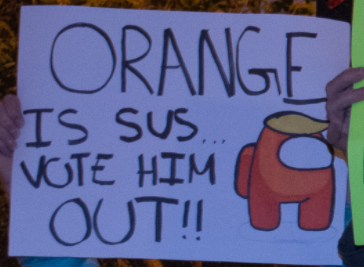 ORANGE
IS SUS...
VOTE HIM
OUT!!